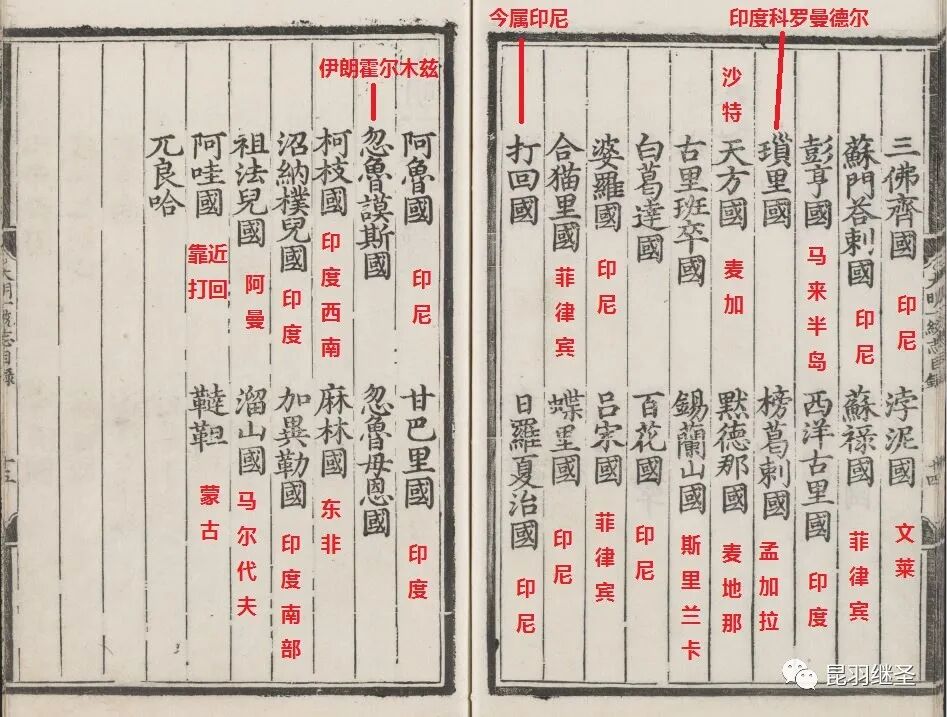 今属印尼
印度科罗曼德尔
伊朗霍尔木兹
三佛齊國 印尼 浡泥國 文莱
蘇門荅剌國 印尼 蘇祿國 菲律宾
彭亨國 马来半岛 西洋古里國 印度
瑣里國 榜葛剌國 孟加拉
沙特 天方國 麦加 默德那國 麦地那
古里班卒國 錫蘭山國 斯里兰卡
白葛達國 百花國 印尼
婆羅國 印尼 吕宋國 菲律宾
合猫里國 菲律宾 蝶里國 印尼
打回國 日羅夏治國 印尼
阿魯國 印尼 甘巴里國 印度
忽魯謨斯國 忽魯毋恩國
柯枝國 印度西南 麻林國 东非
沼納樸兒國 印度 加異勒國 印度南部
祖法兒國 阿曼 溜山國 马尔代夫
阿哇國 靠近打回 韃靼 蒙古
兀良哈
大明一統志目錄
昆羽继圣